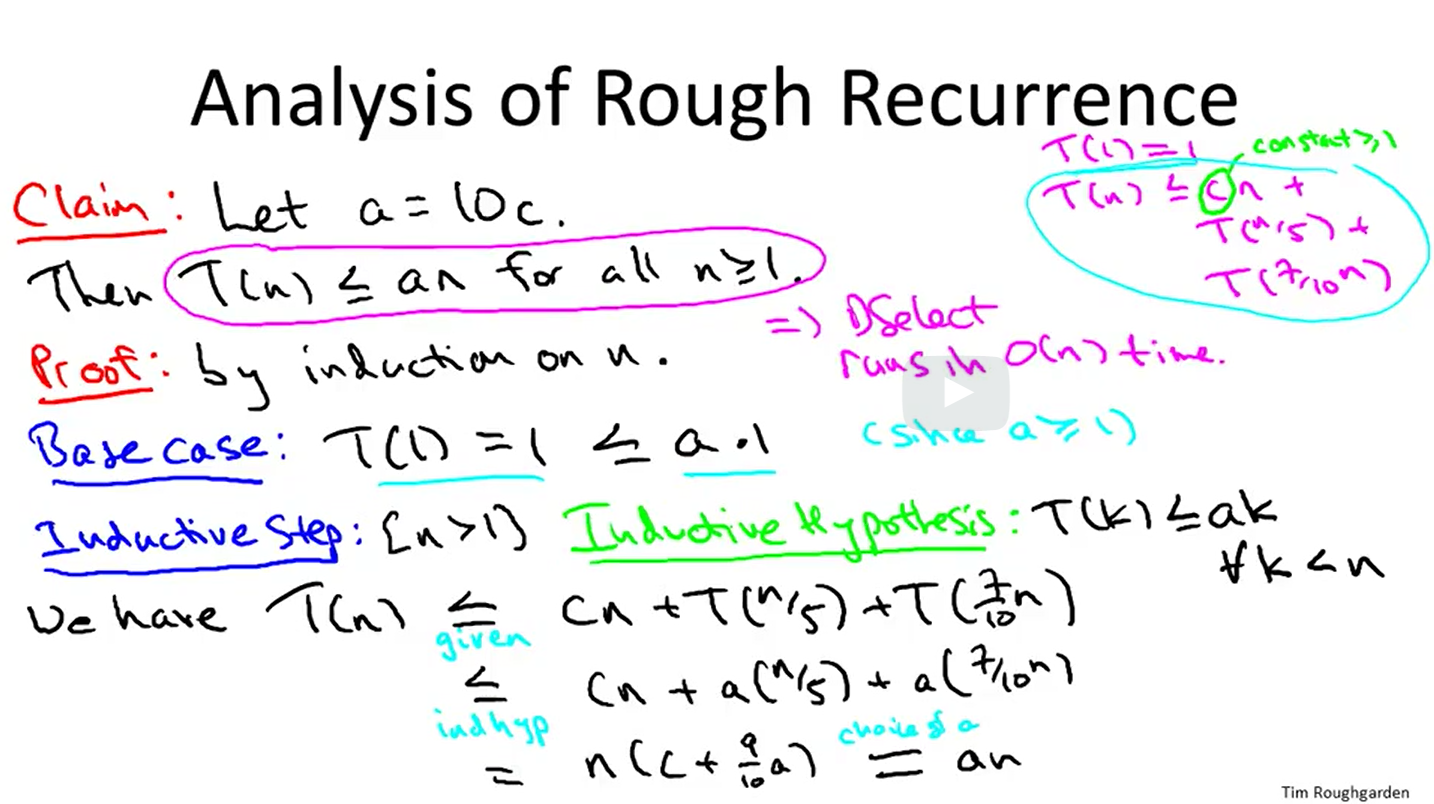 Analysis of Rough Recurrence
T(1) = 1
constant ≥ 1
T(n) ≤ cn +
T(n/5) +
T(7/10 n)
Claim: Let a = 10c.
Then T(n) ≤ an for all n ≥ 1.
=> DSelect
runs in O(n) time.
Proof: by induction on n.
Base case: T(1) = 1 ≤ a·1 (since a ≥ 1)
Inductive Step: {n>1} Inductive Hypothesis: T(k) ≤ ak
∀k < n
We have T(n) ≤ cn + T(n/5) + T(7/10 n)
given
≤ cn + a(n/5) + a(7/10 n)
ind hyp
choice of a
= n(c + 9/10 a) = an
Tim Roughgarden